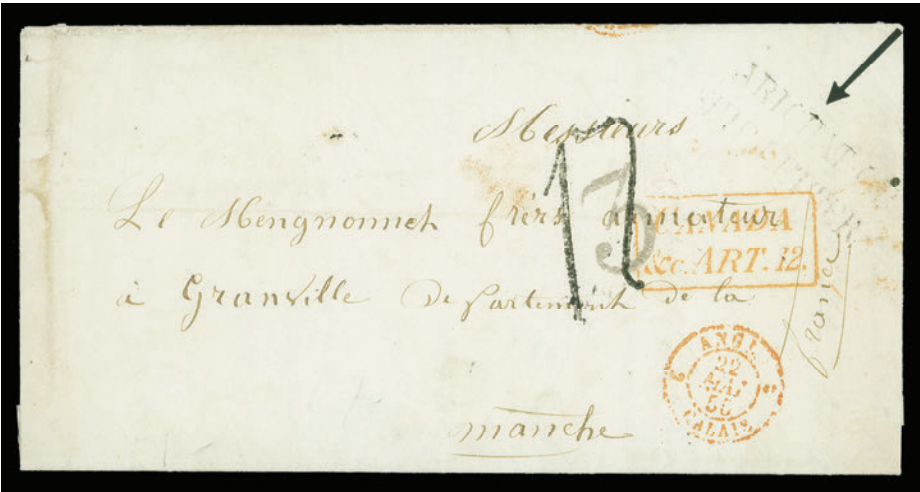 Messieurs
Le Mengnonnet frérs armateur
à Granville Departement de la
manche
17
3
CANADA
&c. ART. 12.
france
6 ANGL. 2
22
MAI
56
CALAIS